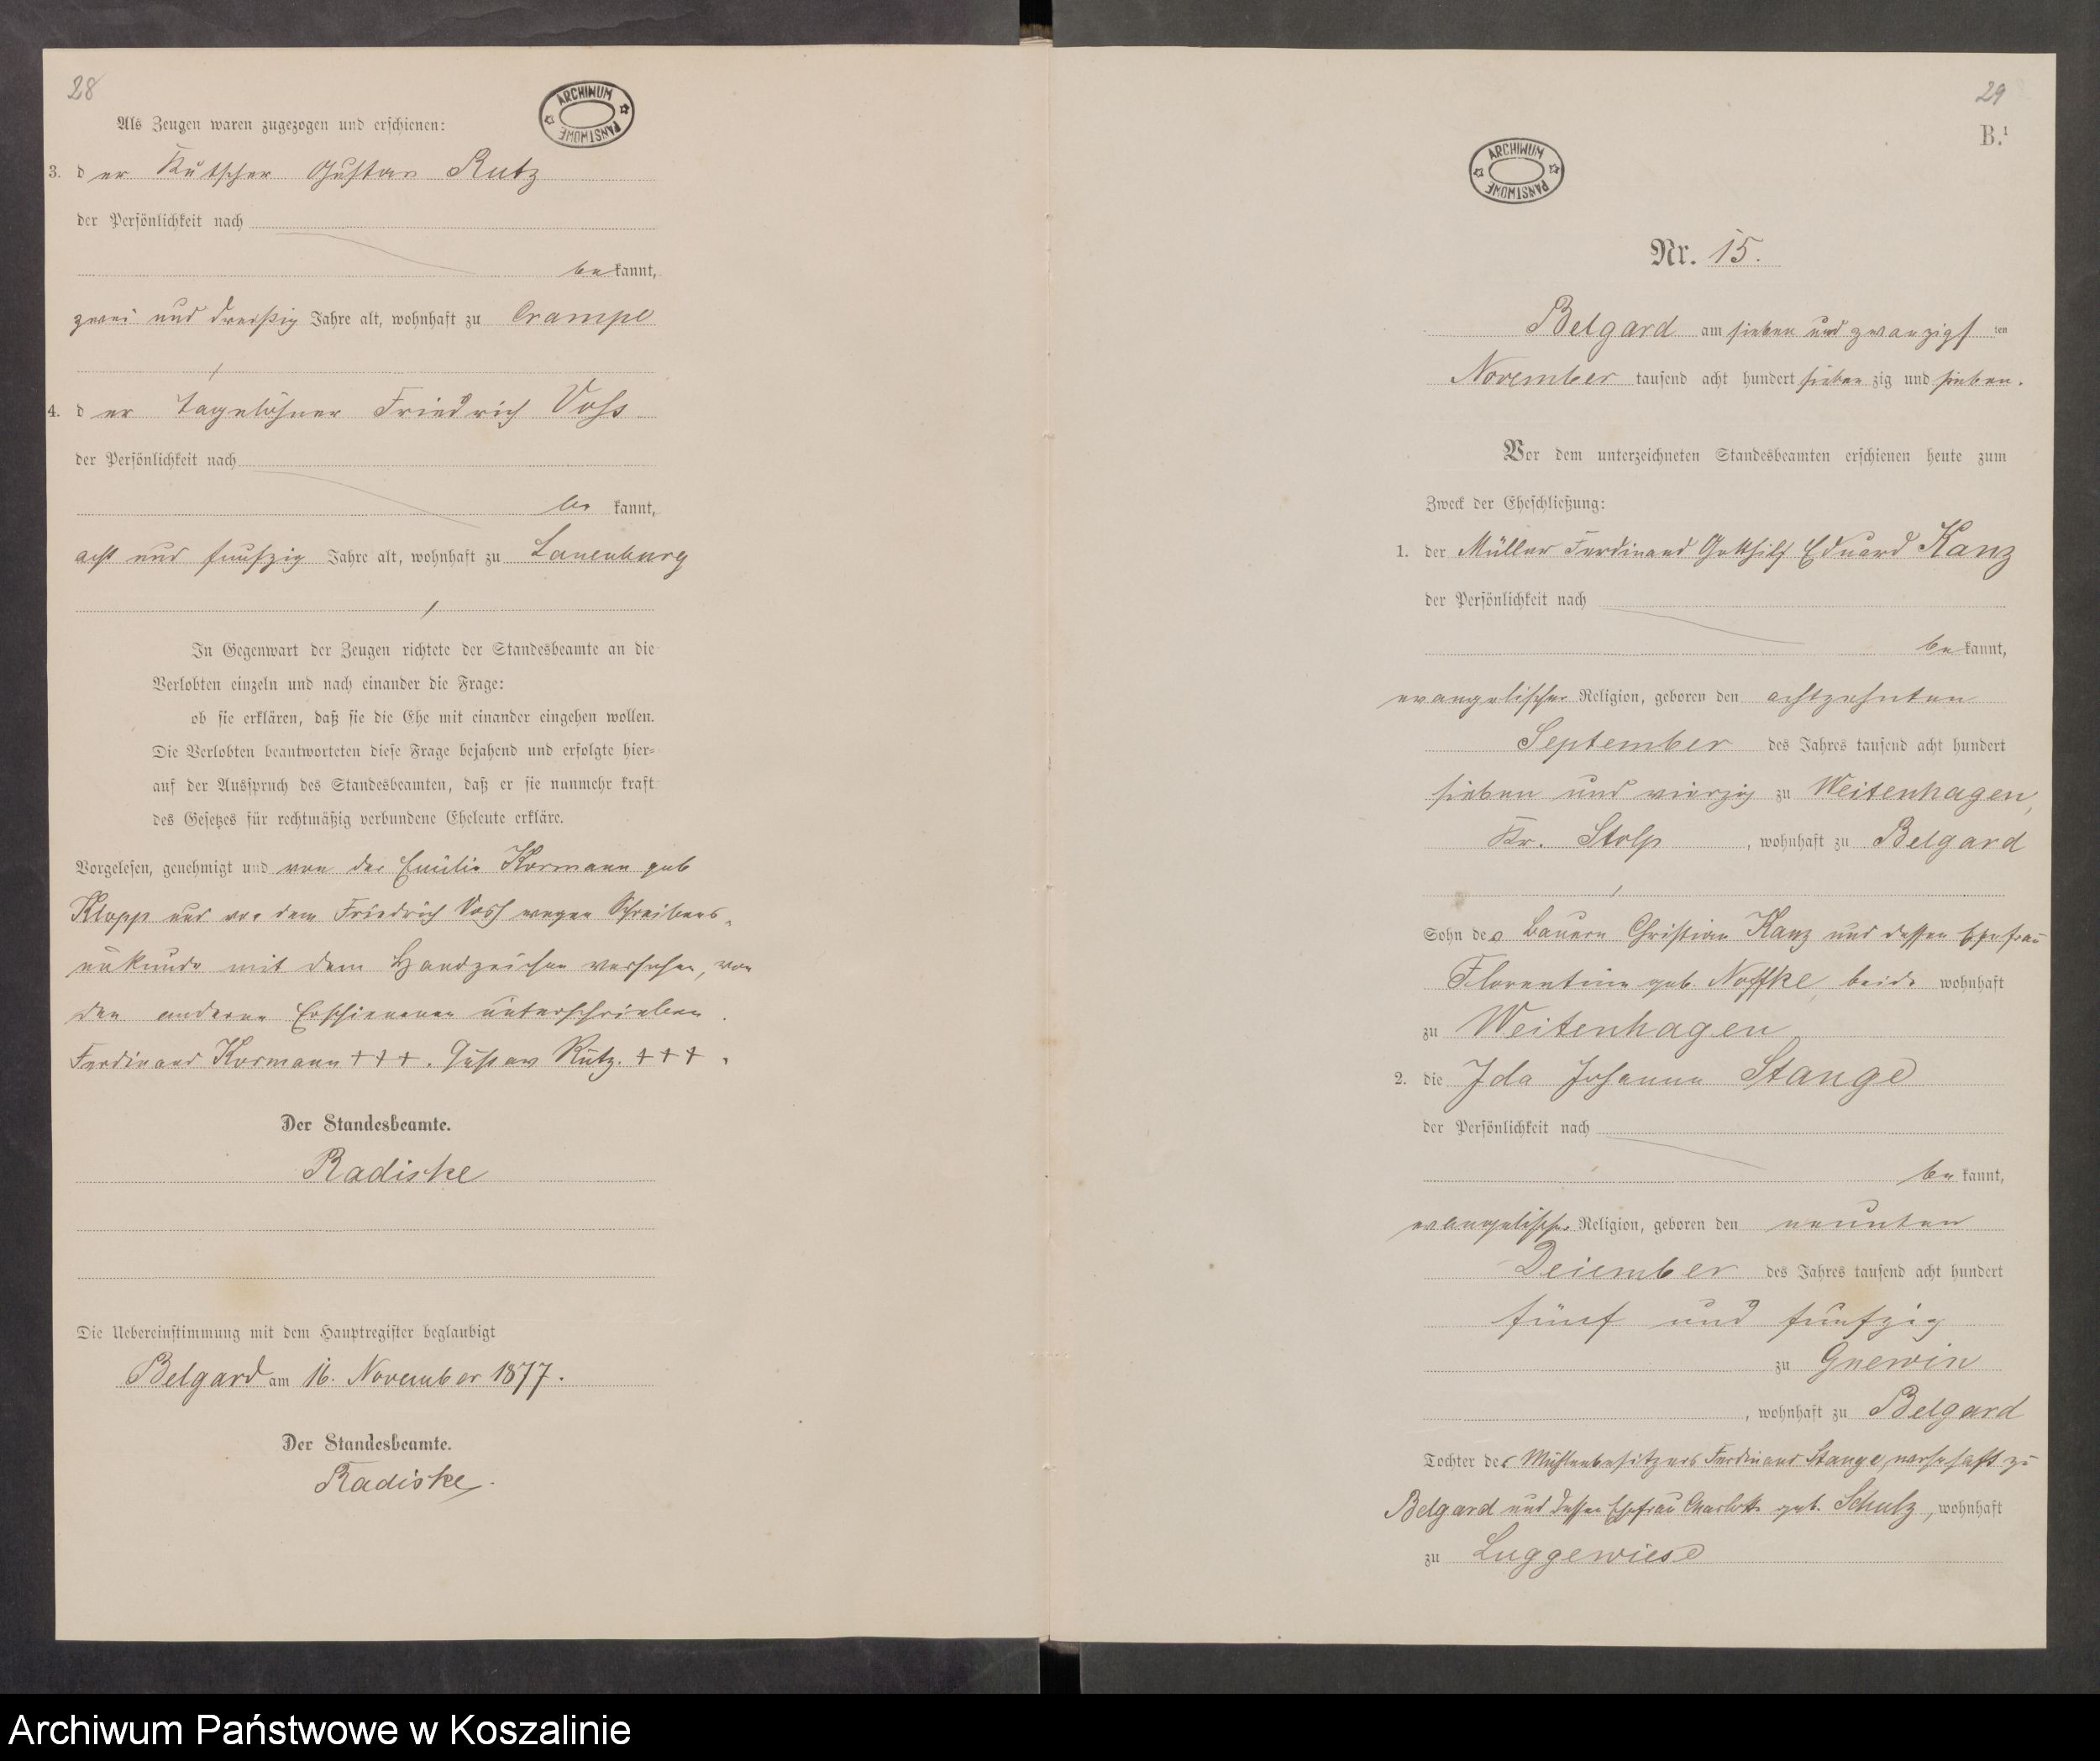 28
ARCHIWUM PAŃSTWOWE
Als Zeugen waren zugezogen und erschienen:
3. der Kutscher Gustav Rutz
der Persönlichkeit nach
bekannt,
zwei und dreißig Jahre alt, wohnhaft zu Crampe
4. der Tagelöhner Friedrich Voss
der Persönlichkeit nach
be kannt,
acht und fünfzig Jahre alt, wohnhaft zu Lauenburg
In Gegenwart der Zeugen richtete der Standesbeamte an die
Verlobten einzeln und nach einander die Frage:
ob sie erklären, daß sie die Ehe mit einander eingehen wollen.
Die Verlobten beantworteten diese Frage bejahend und erfolgte hier-
auf der Ausspruch des Standesbeamten, daß er sie nunmehr kraft
des Gesetzes für rechtmäßig verbundene Eheleute erkläre.
Vorgelesen, genehmigt und von der Emilie Kormann geb
Klopp und von dem Friedrich Voss wegen Schreibens-
unkunde mit dem Handzeichen versehen, von
den anderen Erschienenen unterschrieben.
Ferdinand Kormann +++. Gustav Rutz. +++.
Der Standesbeamte.
Radiske
Die Uebereinstimmung mit dem Hauptregister beglaubigt
Belgard am 16. November 1877.
Der Standesbeamte.
Radiske.
29
B.¹
ARCHIWUM PAŃSTWOWE
Nr. 15.
Belgard am sieben und zwanzigsten
November tausend acht hundert siebenzig und sieben.
Vor dem unterzeichneten Standesbeamten erschienen heute zum
Zweck der Eheschließung:
1. der Müller Ferdinand Gotthilf Eduard Kanz
der Persönlichkeit nach
bekannt,
evangelischer Religion, geboren den achtzehnten
September des Jahres tausend acht hundert
sieben und vierzig zu Weitenhagen,
Kr. Stolp, wohnhaft zu Belgard
Sohn des Bauern Christian Kanz und dessen Ehefrau
Florentine geb. Noffke, beide wohnhaft
zu Weitenhagen
2. die Ida Johanna Stange
der Persönlichkeit nach
be kannt,
evangelischer Religion, geboren den neunten
Dezember des Jahres tausend acht hundert
fünf und fünfzig
zu Gnewin
, wohnhaft zu Belgard
Tochter des Mühlenbesitzers Ferdinand Stange, wohnhaft zu
Belgard und dessen Ehefrau Charlotte geb. Schulz, wohnhaft
zu Luggewiese
Archiwum Państwowe w Koszalinie